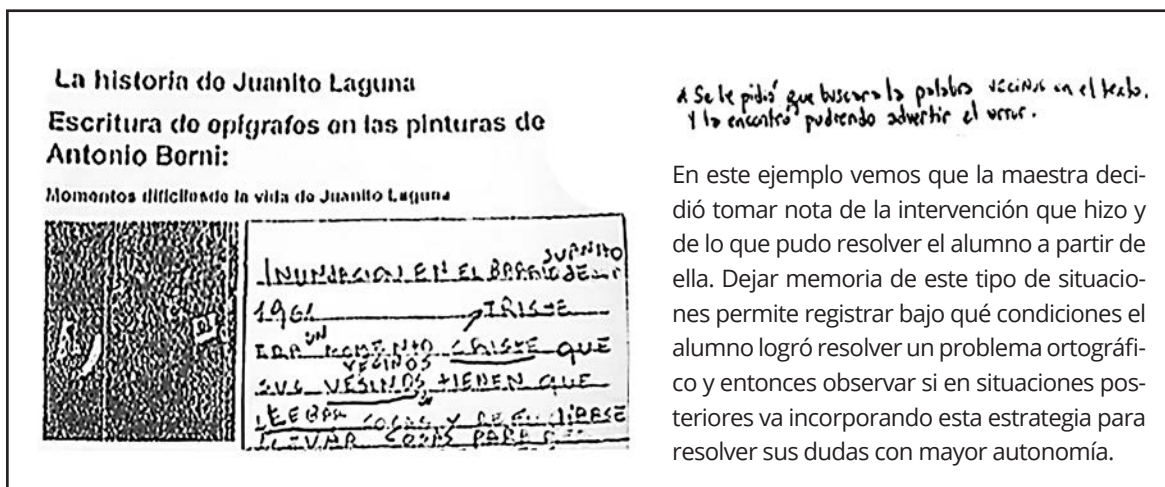 La historia de Juanito Laguna
Escritura de epígrafes en las pinturas de
Antonio Berni:
Momentos difíciles de la vida de Juanito Laguna
JUANITO
INUNDACION EN EL BARRIO DE
1961 TRISTE
UN
ERA MOMENTO CRISTE QUE
VECINOS
SUS VESINOS TIENEN QUE
COSAS Y
COSAS PARA
* Se le pidió que buscara la palabra vecinos en el texto.
Y la encontró pudiendo advertir el error.
En este ejemplo vemos que la maestra deci-
dió tomar nota de la intervención que hizo y
de lo que pudo resolver el alumno a partir de
ella. Dejar memoria de este tipo de situacio-
nes permite registrar bajo qué condiciones el
alumno logró resolver un problema ortográfi-
co y entonces observar si en situaciones pos-
teriores va incorporando esta estrategia para
resolver sus dudas con mayor autonomía.